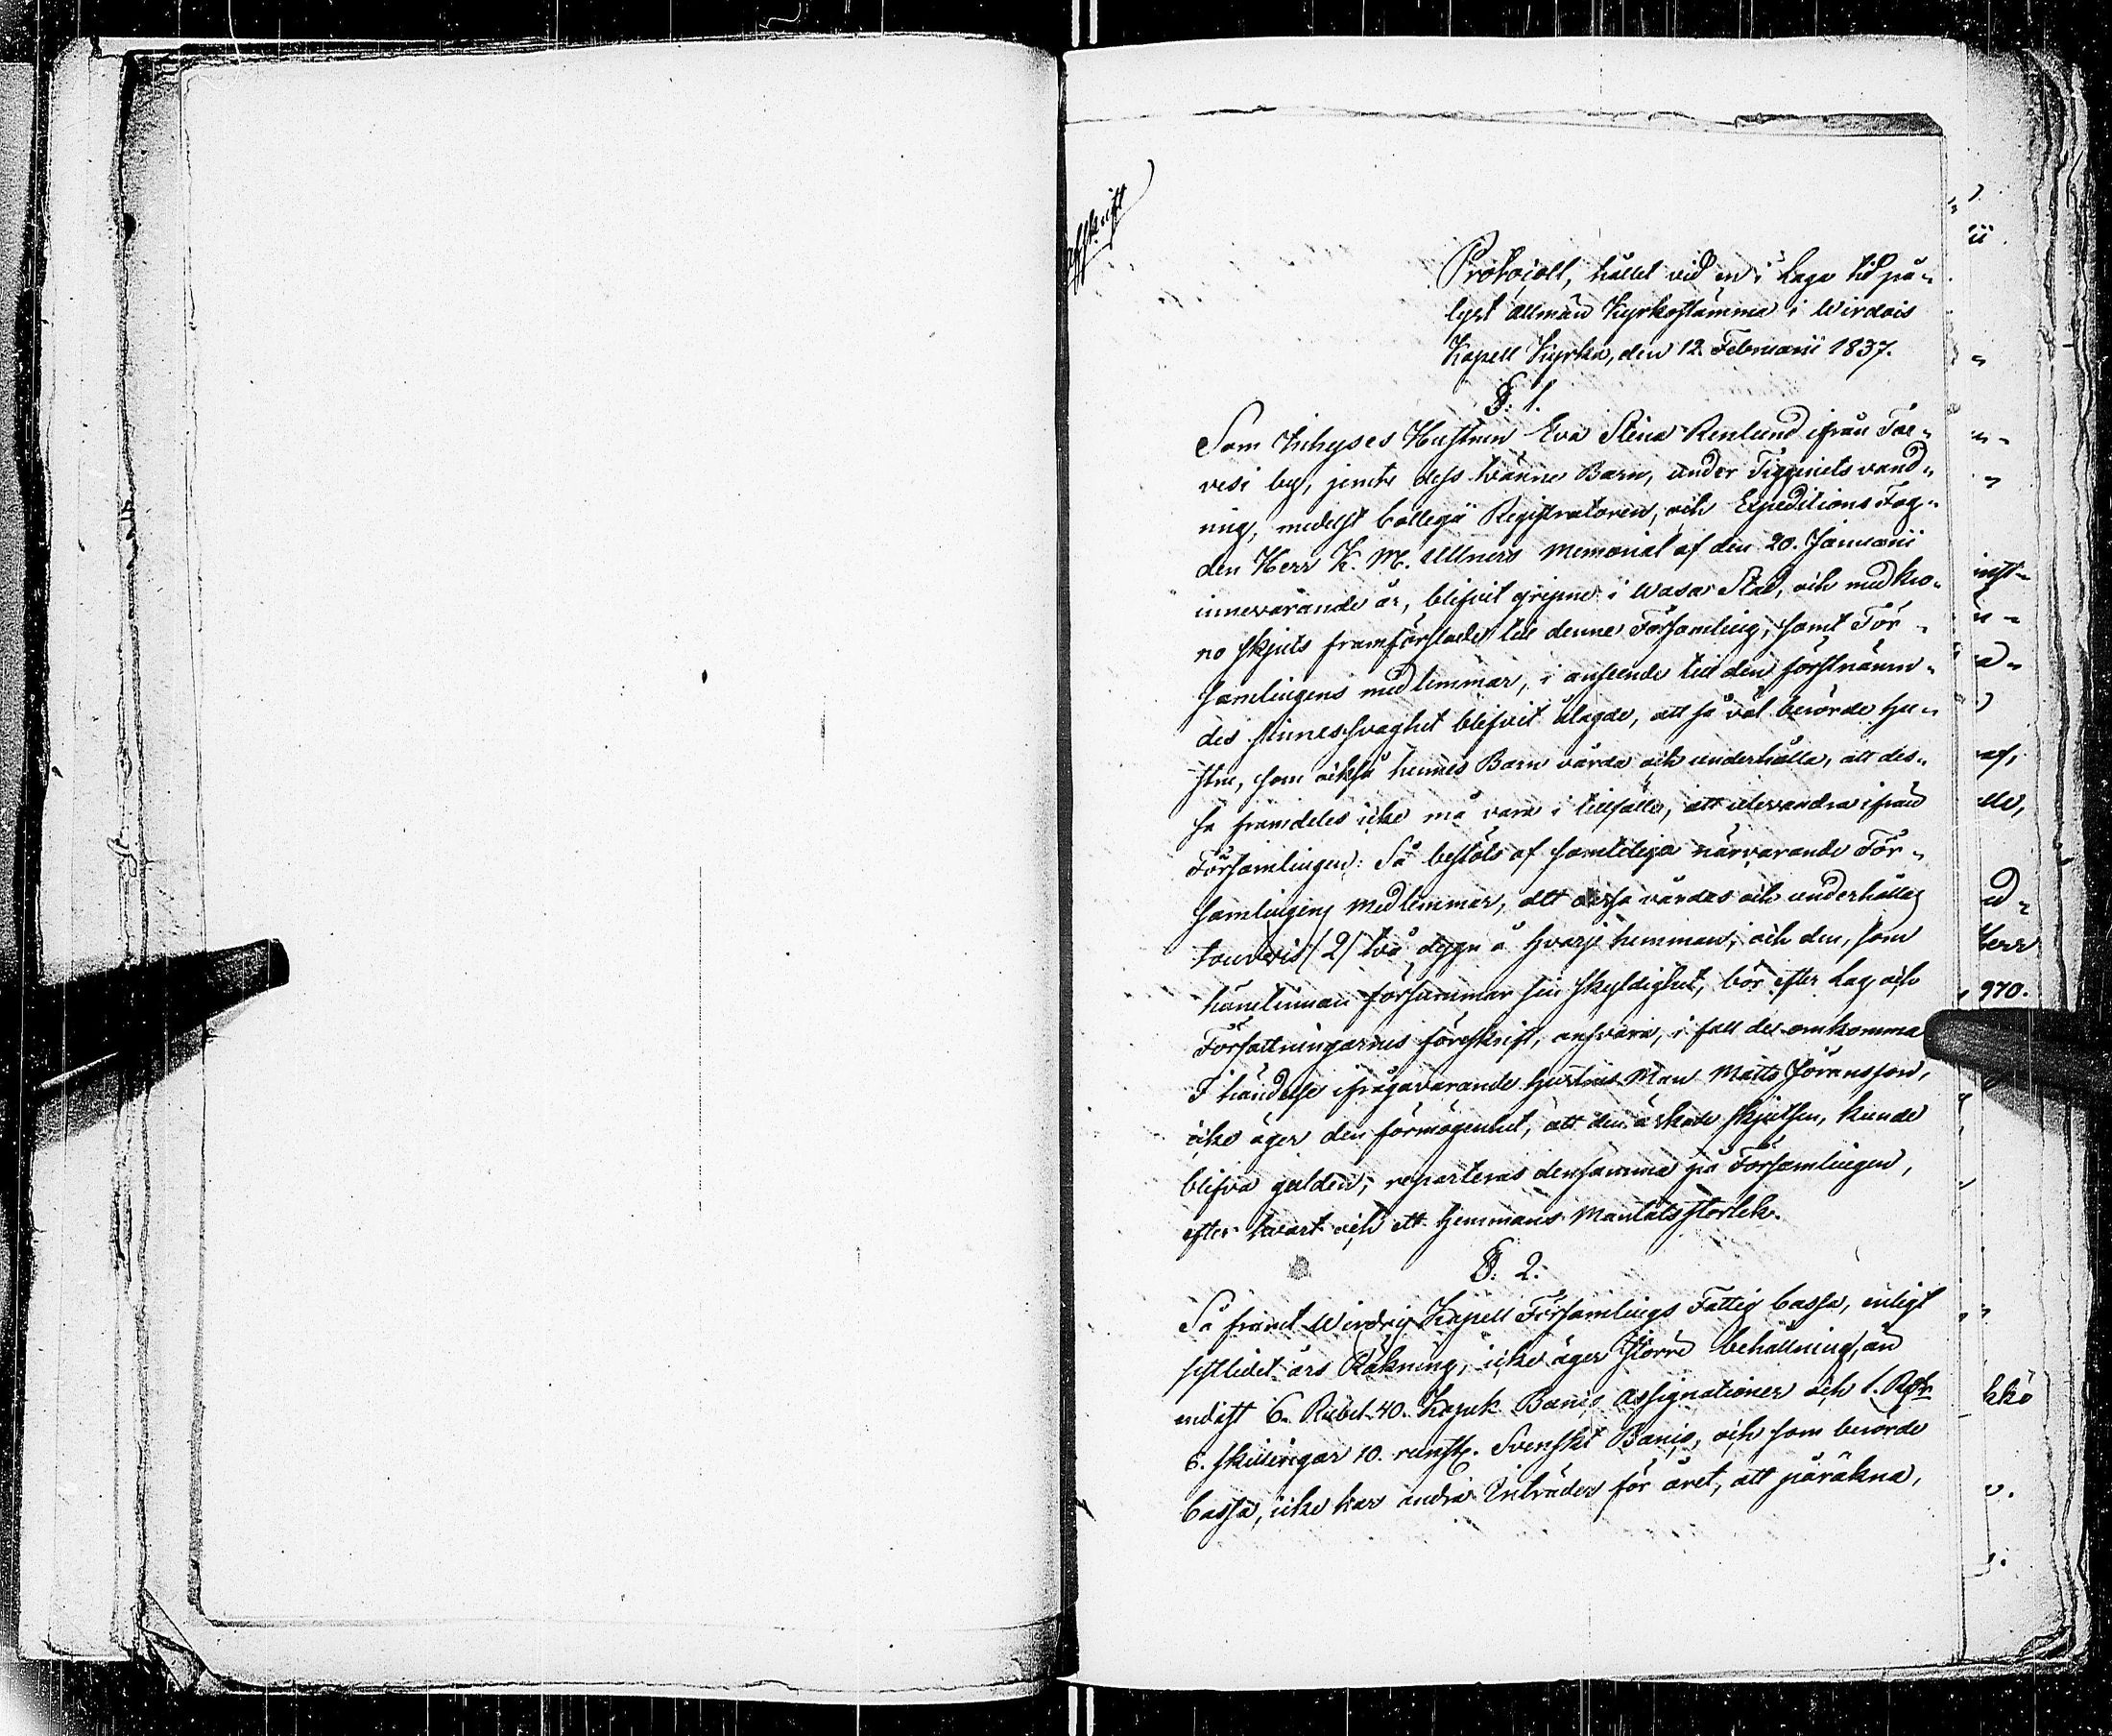 Afskrift
Protocoll, hållet vid en i Laga tid på-
lyst allmän Kyrkostämma i Wirdois
Kapell Kyrka, den 12 Februarii 1837.
§. 1.
Som Inhyses Hustrun Eva Stina Renlund ifrån Tar-
vesi by, jemte dess tvänne Barn, under Tiggeriets vand-
ring, medelst Collegii Registratoren, och Expeditions Fog-
den Herr K. M. Ullners Memorial af den 20. Januarii
innevarande år, blifvit gripne i Wasa Stad, och med kro-
no skjuts framförslade till denne Församling, samt För-
samlingens medlemmar, i anseende till den förstnämn-
des sinnessvaghet blifvit ålagde, att så väl berörde hu-
stru, som också hennes Barn vårda och underhålla, att des-
sa framdeles icke må vara i tillfälle, att utevandra ifrån
Församlingen: Så beslöts af samtelige närvarande För-
samlingens medlemmar, att dessa vårdas och underhålles
tourvis /2/ två dygn å hvarje hemman, och den, som
härutinnan försummar sin skyldighet, bör efter Lag och
Författningarnes föreskrift, ansvara, i fall de omkomma
I händelse ifrågavarande hustrus Man Matts Jöransson,
icke äger den förmögenhet, att den åskade skjutsen, kunde
blifva gulden; reparteras densamma på Församlingen,
efter hvart och ett hemmans Mantals storlek.
§. 2.
Så framt Wirdois Kapell Församlings Fattig Cassa, enligt
sistlidet års Räkning, icke äger större behållning, än
endast 6. Rubel 40. Kopek Banco Assignationer och 1. Rdr
6. skillingar 10. runst. Svenskt Banco, och som berörde
Cassa, icke har andra Inträder för året, att påräkna,